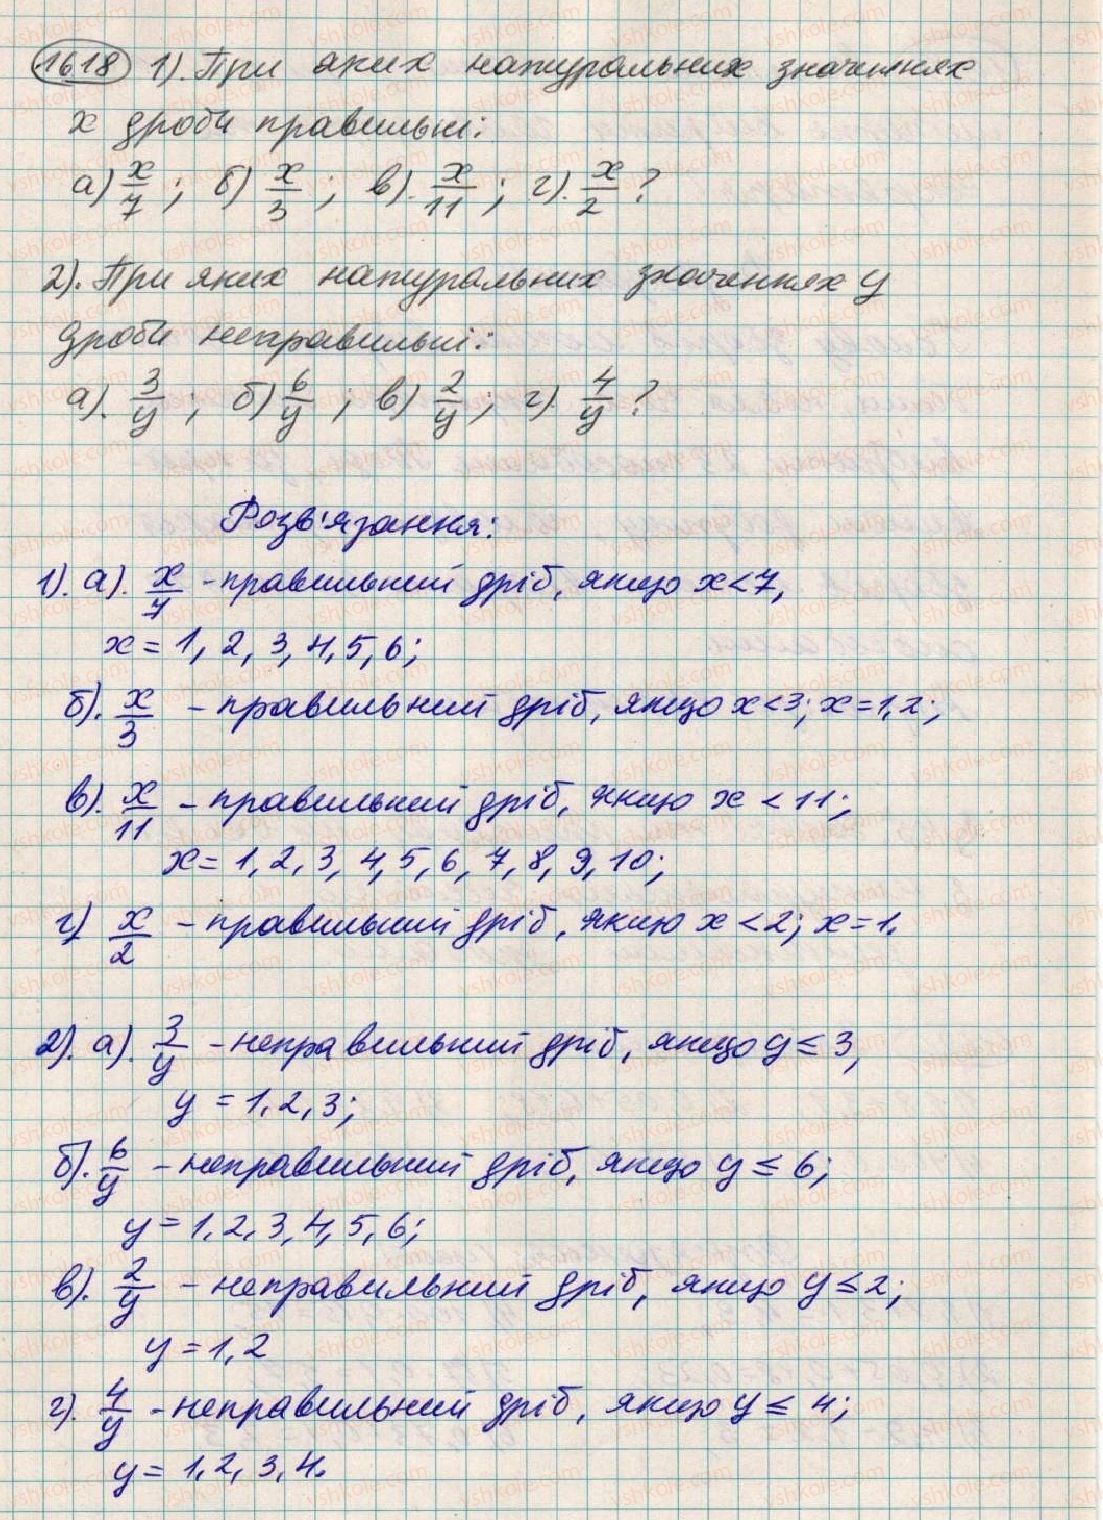 1618 1). При яких натуральних значеннях
x дроби правильні:
а) x/7 ; б) x/3 ; в). x/11 ; г). x/2 ?
2). При яких натуральних значеннях y
дроби неправильні:
а). 3/y ; б) 6/y ; в) 2/y ; г). 4/y ?
Розв'язання:
1). а). x/7 - правильний дріб, якщо x<7,
x = 1, 2, 3, 4, 5, 6;
б). x/3 - правильний дріб, якщо x<3; x=1,2;
в). x/11 - правильний дріб, якщо x < 11;
x = 1, 2, 3, 4, 5, 6, 7, 8, 9, 10;
г) x/2 - правильний дріб, якщо x < 2; x=1.
2). а). 3/y - неправильний дріб, якщо y ≤ 3,
y = 1, 2, 3;
б). 6/y - неправильний дріб, якщо y ≤ 6;
y = 1, 2, 3, 4, 5, 6;
в). 2/y - неправильний дріб, якщо y ≤ 2;
y = 1, 2
г). 4/y - неправильний дріб, якщо y ≤ 4;
y = 1, 2, 3, 4.